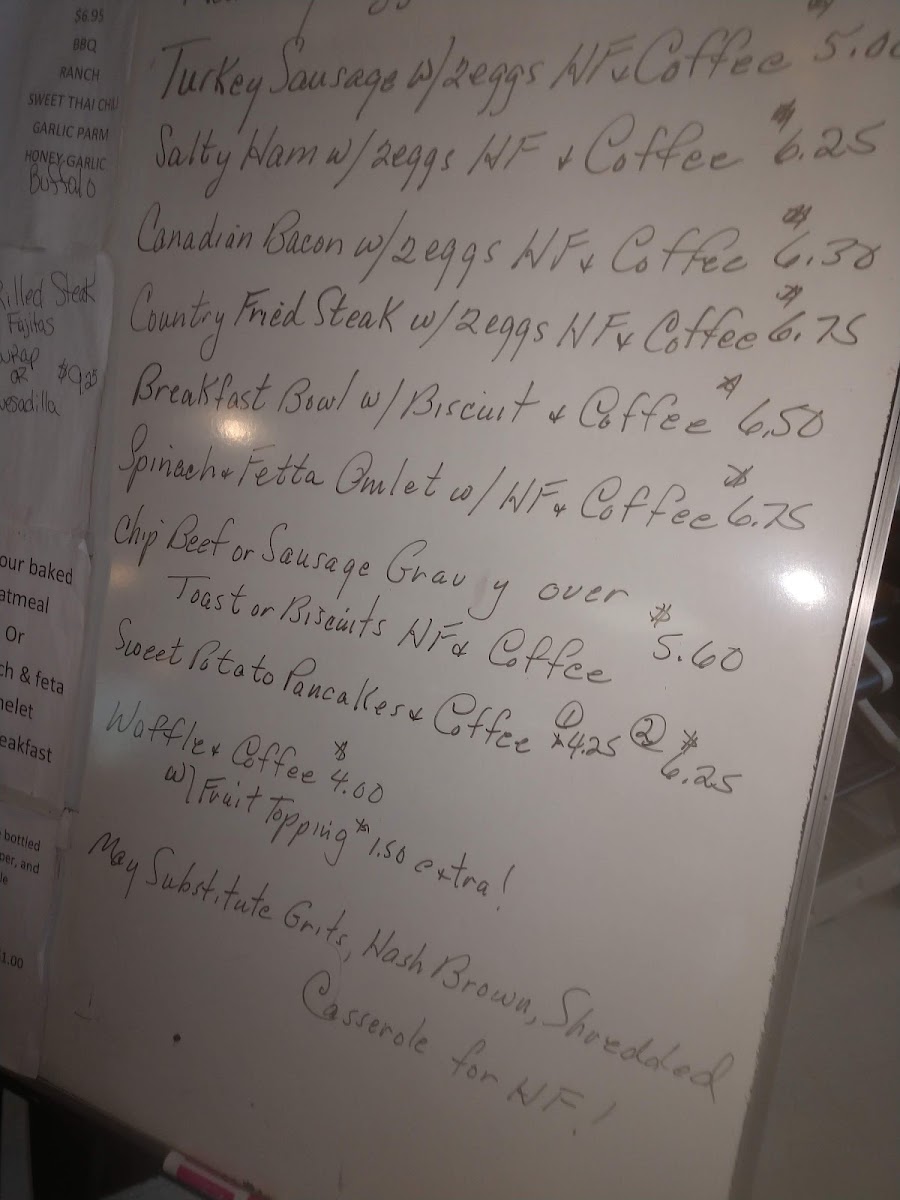 $6.95
BBQ
RANCH
SWEET THAI CHILI
GARLIC PARM
HONEY-GARLIC
Buffalo
rilled Steak
Fajitas
wrap
or $9.25
uesadilla
our baked
atmeal
Or
ch & feta
elet
eakfast
bottled
per, and
le
1.00
Turkey Sausage w/2eggs HF & Coffee $5.00
Salty Ham w/ 2eggs HF & Coffee $6.25
Canadian Bacon w/2eggs HF & Coffee $6.30
Country Fried Steak w/2eggs HF & Coffee $6.75
Breakfast Bowl w/ Biscuit & Coffee $6.50
Spinach & Fetta Omlet w/ HF & Coffee $6.75
Chip Beef or Sausage Gravy over
Toast or Biscuits HF & Coffee $5.60
Sweet Potato Pancakes & Coffee ① $4.25 ② $6.25
Waffle & Coffee $4.00
w/ Fruit Topping $1.50 extra!
May Substitute Grits, Hash Brown, Shredded
Casserole for HF!